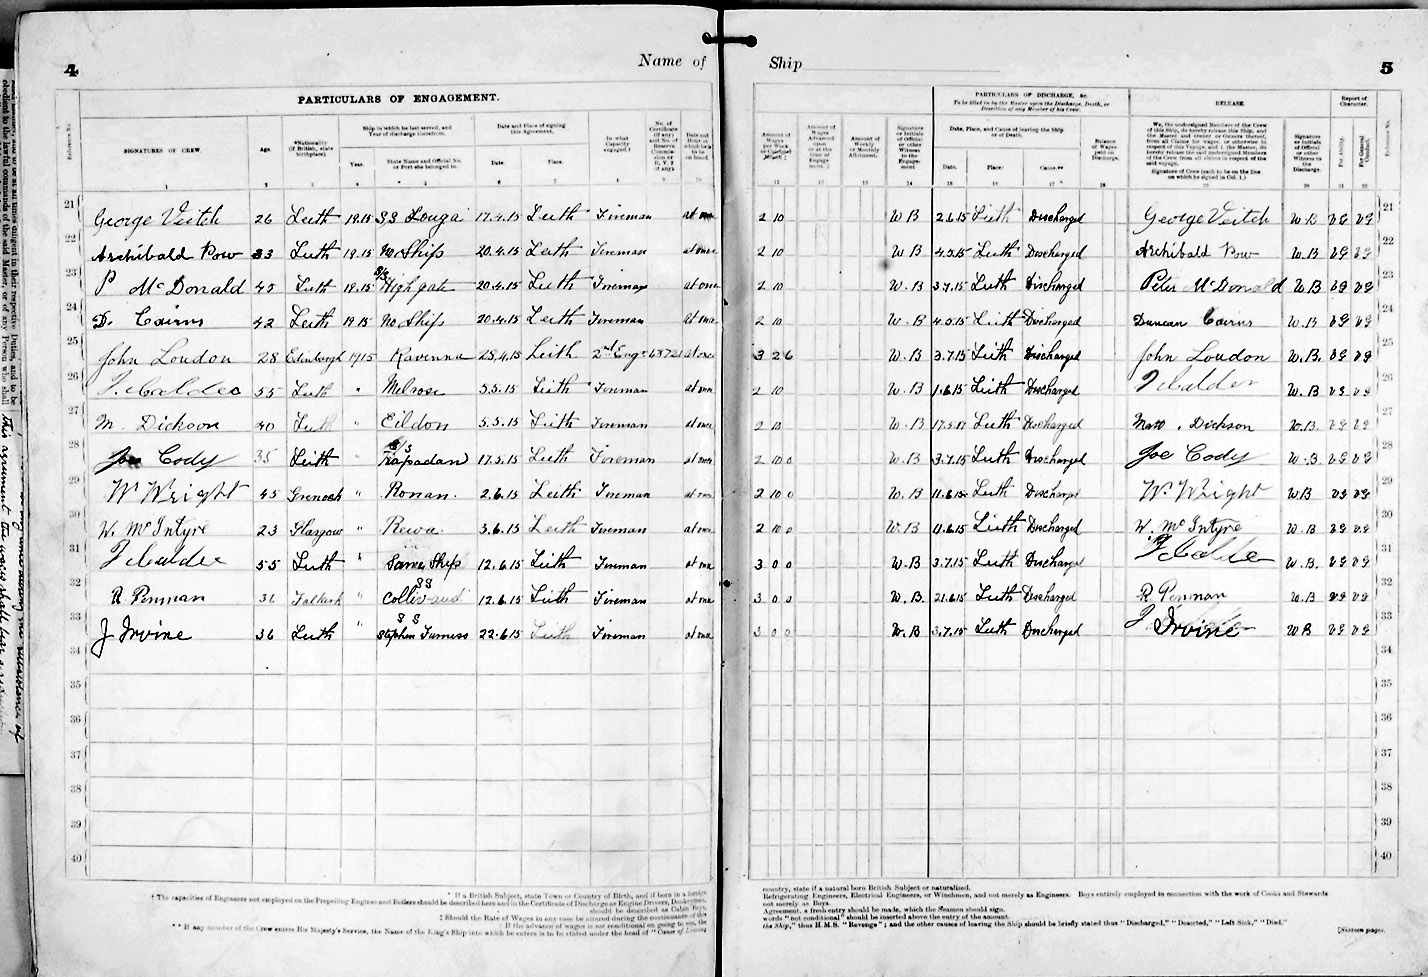 4
Name of
Ship
5
PARTICULARS OF ENGAGEMENT.
SIGNATURES OF CREW.
Age.
*Nationality (if British, state birthplace).
Ship in which he last served, and Year of discharge therefrom.
Year.
State Name and Official No. or Port she belonged to.
Date and Place of signing this Agreement.
Date.
Place.
In what Capacity engaged.†
PARTICULARS OF DISCHARGE, &c.
To be filled in by the Master upon the Discharge, Death, or Desertion of any Member of his Crew.
Date, Place, and Cause of leaving the Ship or of Death.
Date.
Place.
Cause.**
Balance of Wages paid on Discharge.
RELEASE.
We, the undersigned Members of the Crew of this Ship, do hereby release this Ship, and the Master and Owner or Owners thereof, from all Claims for wages, or otherwise in respect of this Voyage, and I, the Master, do hereby release the said undersigned Members of the Crew from all claims in respect of the said voyage.
Signature of Crew (each to be on the line on which he signed in Col. 1.)
Signature or Initials of Official or other Witness to the Discharge.
Report of Character.
For Ability.
For General Conduct.
21 George Veitch 26 Leith 1915 SS Louga 17.4.15 Leith Fireman at once 2 10 W B 2.6.15 Leith Discharged George Veitch W.B VG VG 21
22 Archibald Pow 33 Leith 1915 No Ship 20.4.15 Leith Fireman at once 2 10 W B 4.5.15 Leith Discharged Archibald Pow W.B VG VG 22
23 P McDonald 45 Leith 1915 S/S Highgate 20.4.15 Leith Fireman at once 2 10 W.B 3.7.15 Leith Discharged Peter McDonald W.B VG VG 23
24 D. Cairns 42 Leith 1915 No Ship 20.4.15 Leith Fireman at once 2 10 W.B 4.5.15 Leith Discharged Duncan Cairns W.B VG VG 24
25 John Loudon 28 Edinburgh 1915 Ravenna 25.4.15 Leith 2nd Engr at once 3 2 6 W.B 3.7.15 Leith Discharged John Loudon W.B. VG VG 25
26 J. Calder 55 Leith " Melrose 5.5.15 Leith Fireman at once 2 10 W.B 1.6.15 Leith Discharged J Calder W.B VG VG 26
27 M. Dickson 40 Leith " Eildon 5.5.15 Leith Fireman at once 2 10 W.B Leith Discharged Matt. Dickson W.B. VG VG 27
28 Joe Cody 35 Leith " S/S Rapadan 17.5.15 Leith Fireman at once 2 10 0 W.B 3.7.15 Leith Discharged Joe Cody W.B VG VG 28
29 W Wright 45 Greenock " Ronan. 2.6.15 Leith Fireman at once 2 10 0 W.B 11.6.15 Leith Discharged W. Wright W B VG VG 29
30 W. McIntyre 23 Glasgow " Rewa 3.6.15 Leith Fireman at once 2 10 0 W.B 11.6.15 Leith Discharged W. McIntyre W.B VG VG 30
31 J Calder 55 Leith " Same Ship 12.6.15 Leith Fireman at once 3 0 0 W.B 3.7.15 Leith Discharged J Calder W.B. VG VG 31
32 R Penman Falkirk " SS 12.6.15 Leith Fireman at once 3 0 0 W.B. 21.6.15 Leith Discharged R. Penman W.B VG VG 32
33 J Irvine 36 Leith " SS Stephen Furness 22.6.15 Leith Fireman at once 3 0 0 W.B 3.7.15 Leith Discharged J Irvine W B VG VG 33
34 34
35 35
36 36
37 37
38 38
39 39
40 40
* If a British Subject, state Town or Country of Birth, and if born in a foreign
† The capacities of Engineers not employed on the Propelling Engines and Boilers should be described here and in the Certificate of Discharge as Engine Drivers, Donkeymen,
should be described as Cabin Boys,
‡ Should the Rate of Wages in any case be altered during the continuance of this
If the advance of wages is not conditional on going to sea, the
** If any member of the Crew enters His Majesty's Service, the Name of the King's Ship into which he enters is to be stated under the head of "Cause of Leaving
country, state if a natural born British Subject or naturalized.
Refrigerating Engineers, Electrical Engineers, or Winchmen, and not merely as Engineers. Boys entirely employed in connection with the work of Cooks and Stewards
not merely as Boys.
Agreement, a fresh entry should be made, which the Seamen should sign.
words "not conditional" should be inserted above the entry of the amount.
the Ship," thus H.M.S. "Revenge"; and the other causes of leaving the Ship should be briefly stated thus "Discharged," "Deserted," "Left Sick," "Died."
[Sixteen pages.